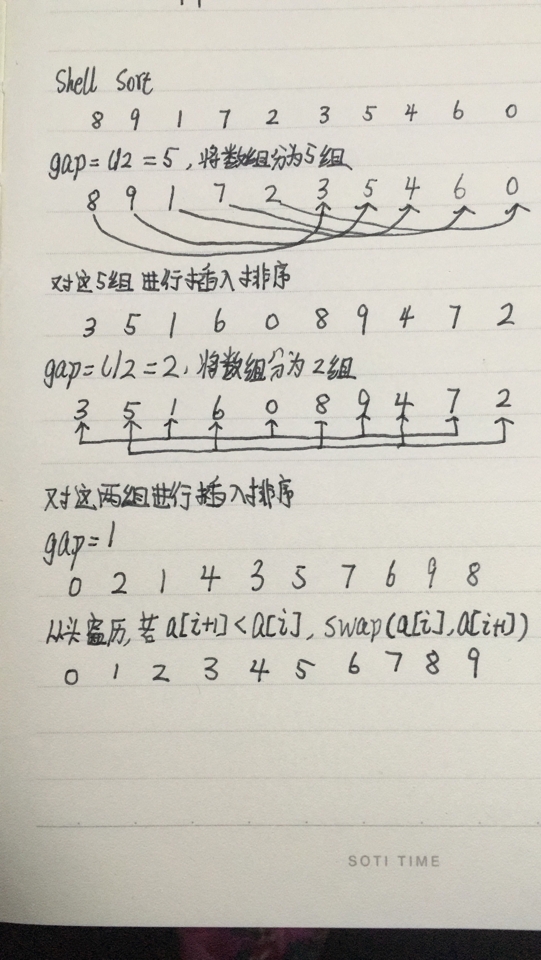 Shell Sort
8 9 1 7 2 3 5 4 6 0
gap=L/2=5,将数组分为5组
8 9 1 7 2 3 5 4 6 0
对这5组进行插入排序
3 5 1 6 0 8 9 4 7 2
gap=L/2=2,将数组分为2组
3 5 1 6 0 8 9 4 7 2
对这两组进行插入排序
gap=1
0 2 1 4 3 5 7 6 9 8
从头遍历,若a[i+1]<a[i],swap(a[i],a[i+1])
0 1 2 3 4 5 6 7 8 9
SOTI TIME